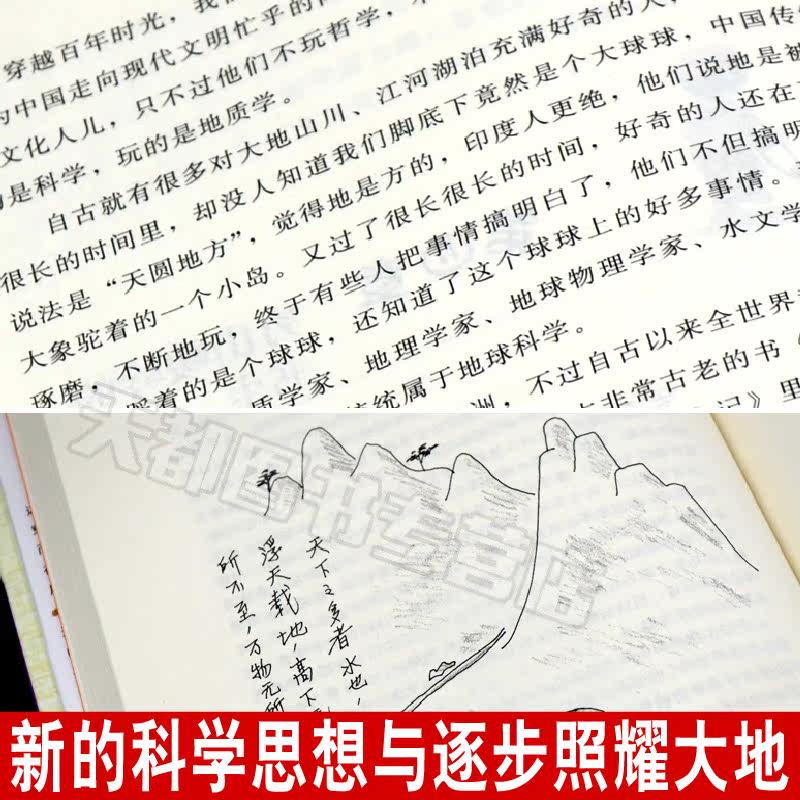 穿越百年时光，我们
的中国走向现代文明忙乎的
文化人儿，只不过他们不玩哲学，
的是科学，玩的是地质学。
自古就有很多对大地山川、江河湖泊充满好奇的人，中国传
很长的时间里，却没人知道我们脚底下竟然是个大球球，
说法是“天圆地方”，觉得地是方的，印度人更绝，他们说地是被
大象驼着的一个小岛。又过了很长很长的时间，好奇的人还在
琢磨，不断地玩，终于有些人把事情搞明白了，他们不但搞明
踩着的是个球球，还知道了这个球球上的好多事情。
质学家、地理学家、地球物理学家、水文学
统统属于地球科学。
洲，不过自古以来全世界
非常古老的书《
记》里
天都图书专营店
天下之多者水也，
浮天载地，高下
所不至，万物无所
新的科学思想与逐步照耀大地